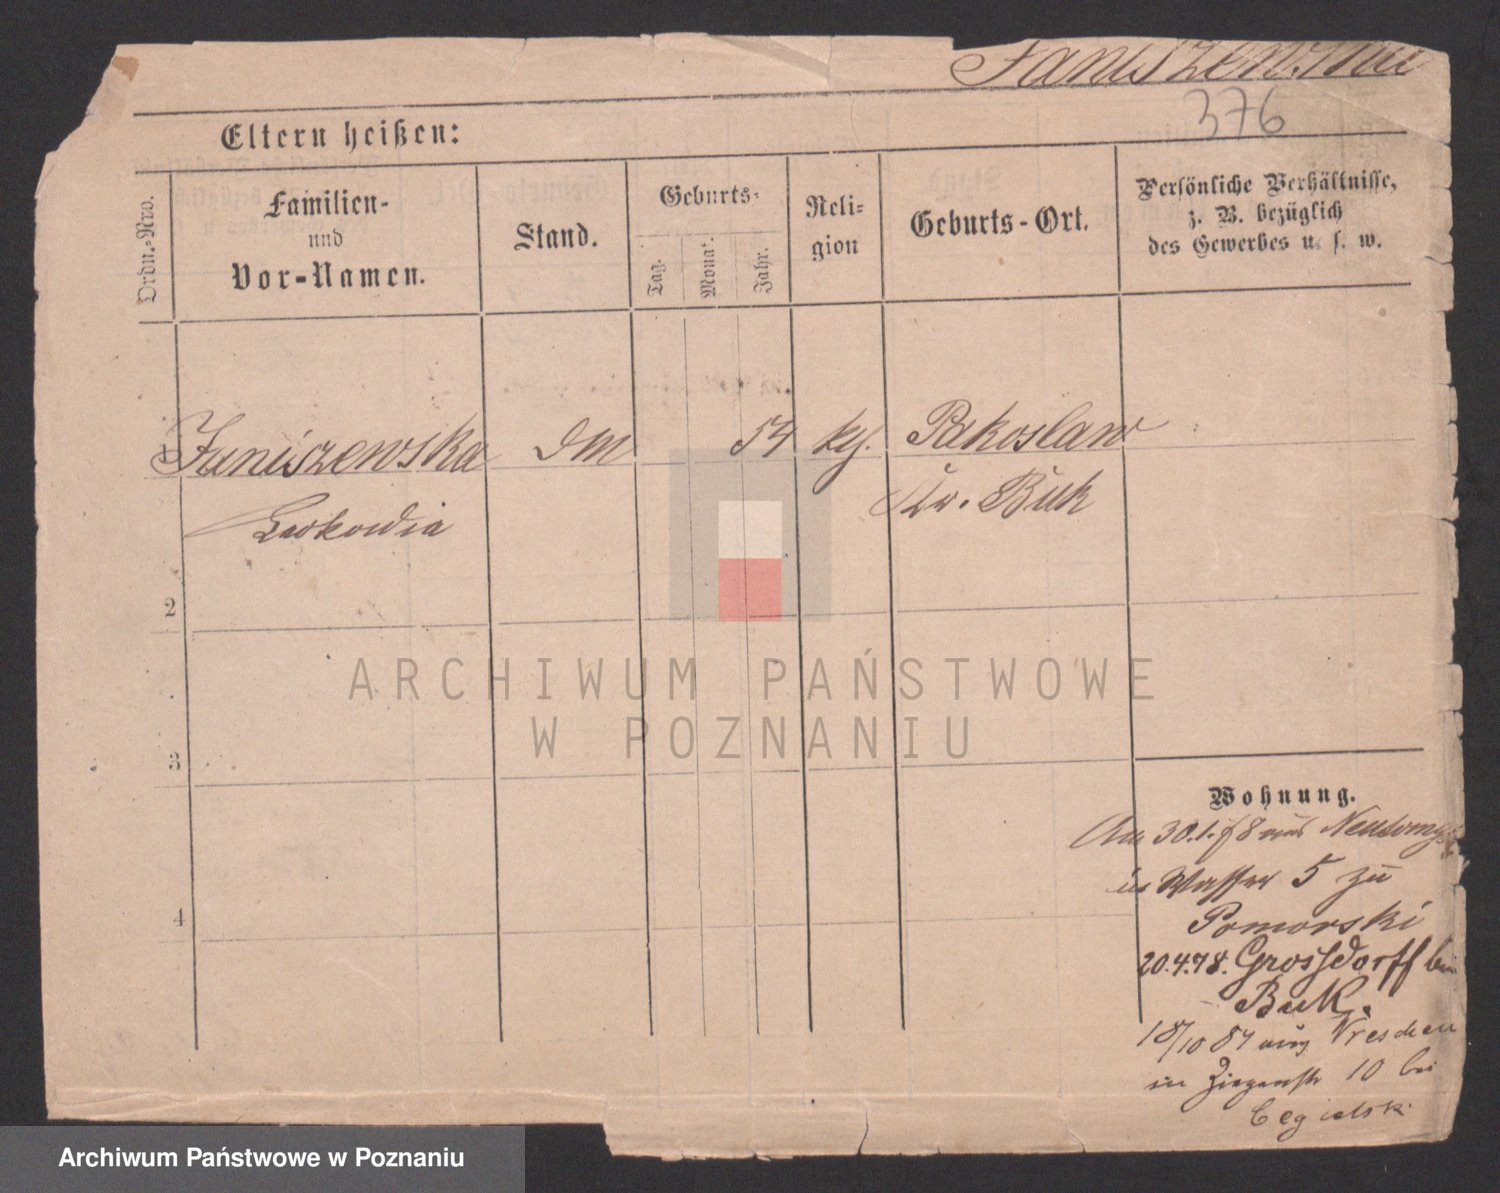 Janiszewska
376
Eltern heißen:
Ordn.-Nro.
Familien-
und
Vor-Namen.
Stand.
Geburts-
Tag.
Monat.
Jahr.
Reli-
gion
Geburts-Ort.
Persönliche Verhältnisse,
z. B. bezüglich
des Gewerbes u. s. w.
1 Janiszewska DM 54 kth. Pakoslaw
Leokordia Kr. Buk
2
3
4
Wohnung.
Am 30.1.78 aus Neutomysl
in Wasser 5 zu
Pomorski
20.4.78. Grossdorff bei
Buk.
18/10 84 aus Wreschen
in Ziegenstr 10 bei
Cegielski
ARCHIWUM PAŃSTWOWE
W POZNANIU
Archiwum Państwowe w Poznaniu